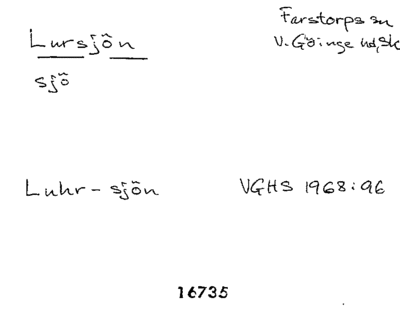 Lursjön
Farstorps sn
V. Göinge hd, Sk
sjö
Luhr-sjön
VGHS 1968:96
16735